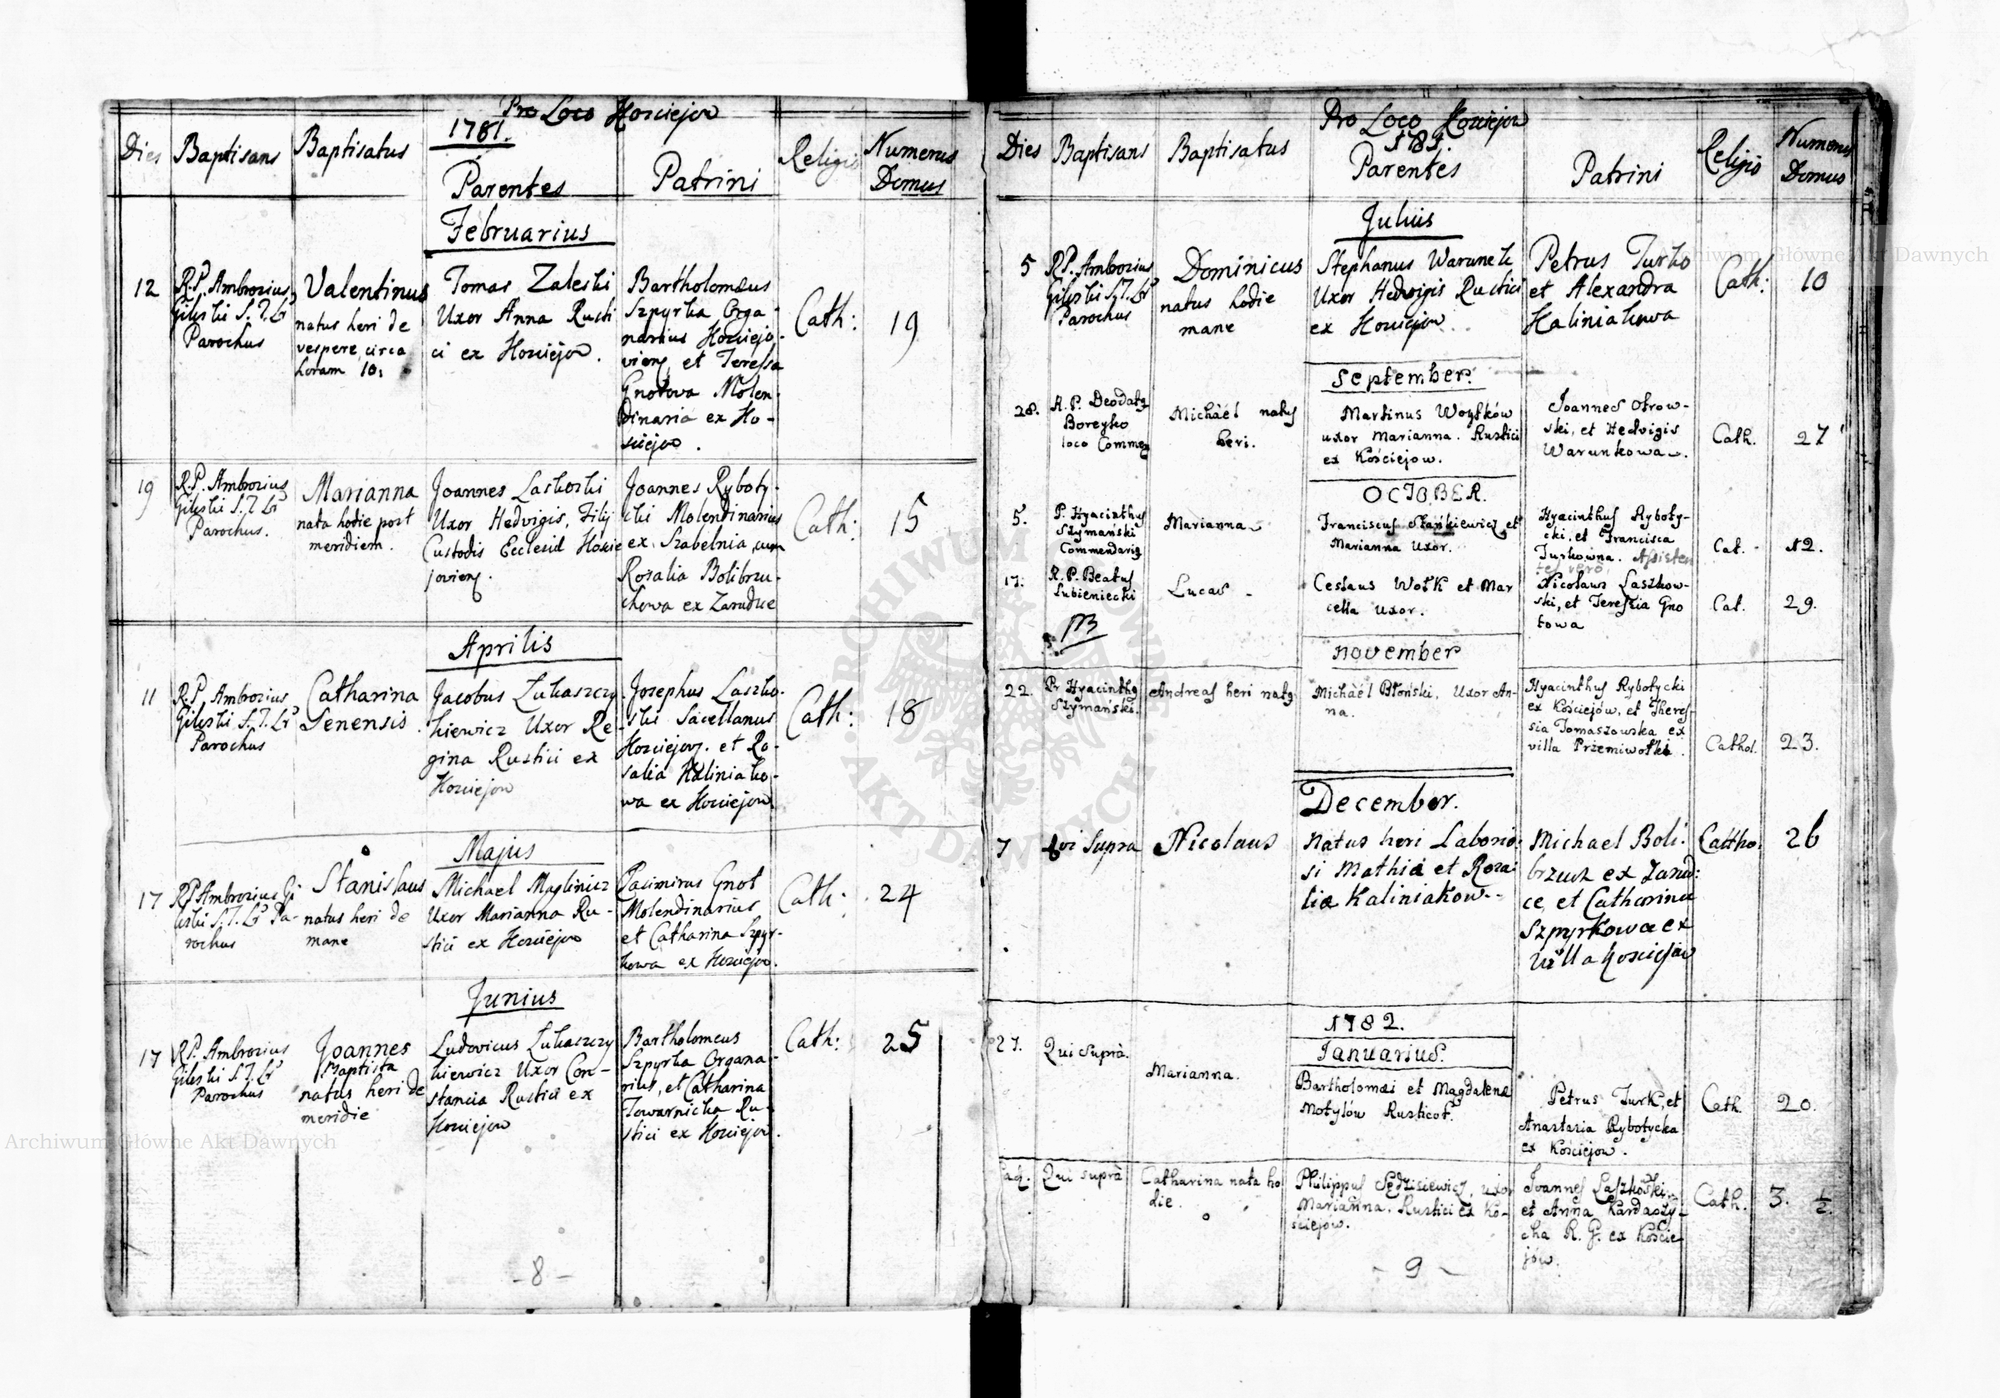 Pro Loco Kosciejow
1781.
Dies Baptisans Baptisatus Parentes Patrini Religio Numerus Domus
Februarius
12
R.P. Ambrosius
Parochus
Valentinus
natus heri de
vespere, circa
horam 10.
Tomas Zaleski
Uxor Anna Rusti
ci ex Kosciejow.
Bartholomæus
Szpyrka Orga-
narius Kosciejo-
et Teressa
Gnotowa Molen-
dinaria ex Ko-
sciejow.
Cath:
19
19
R.P. Ambrosius
Parochus.
Marianna
nata hodie post
meridiem.
Joannes Laskoski
Uxor Hedvigis, Filij
Custodis Ecclesiæ Kosciejo
Joannes Ryboty-
cki Molendinarius
ex Szabelnia, cum
Rosalia Bolibrzu-
chowa ex Zarudce
Cath:
15
Aprilis
11
R.P. Ambrosius
Parochus
Catharina
Senensis.
Jacobus Łukaszczy
kiewicz Uxor Re-
gina Rustici ex
Kosciejow
Josephus Laszko-
ski Sacellanus
et Ro-
salia Kaliniako-
wa ex Kosciejow.
Cath:
18
Majus
17
R.P. Ambrosius Gi
Pa-
rochus
Stanislaus
natus heri de
mane
Michael Maglinicz
Uxor Marianna Ru-
stici ex Kosciejow
Casimirus Gnot
Molendinarius
et Catharina Szpyr-
kowa ex Kosciejow.
Cath:
24
Junius
17
R.P. Ambrosius
Parochus
Joannes
Baptista
natus heri de
meridie
Ludovicus Łukaszczy
kiewicz Uxor Con-
stancia Rustici ex
Kosciejow
Bartholomeus
Szpyrka Organa-
rius, et Catharina
Towarnicka Ru-
stici ex Kosciejow.
Cath:
25
- 8 -
Pro Loco Kosciejow
1781.
Dies Baptisans Baptisatus Parentes Patrini Religio Numerus Domus
Julius
5
R.P. Ambrosius
Parochus
Dominicus
natus hodie
mane
Stephanus Warunek
Uxor Hedvigis Rustici
ex Kosciejow.
Petrus Turko
et Alexandra
Kaliniakowa
Cath:
10
September.
28.
Boreyko
loco
Michaël
heri.
Martinus Woytków
uxor Marianna. Rustici
ex Kościejow.
Joannes Otrow-
ski, et Hedvigis
Warunkowa.
Cath.
27
OCTOBER.
5.
P. Hyacinthus
Szymański
Marianna
Franciscus Stańkiewicz et
Marianna Uxor.
Hyacinthus Ryboty-
cki, et Francisca
Turkowna.
Cat.
12.
17.
R.P. Beatus
Łubieniecki
Lucas
Ceslaus Wołk et Mar
cella uxor.
Nicolaus Laszkow-
ski, et Teressia Gno
towa
Cat.
29.
November
22.
Szymański.
Andreas heri
Michaël Błoński, Uxor An-
na.
Hyacinthus Rybotycki
ex Kościejów, et Theres-
sia Tomaszowska ex
villa Przemiwołki.
Cathol.
23.
December.
7
qui Supra
Nicolaus
Natus heri Laborio
si Mathiæ et Rosa
lia Kaliniakow
Michael Boli-
brzuch ex Zarud:
ce, et Catharina
Szpyrkowa ex
Villa Kosciejow
Cattho.
26
1782.
Januarius.
27.
Qui suprà.
Marianna.
Bartholomæi et Magdalenæ
Motylów
Petrus Turk, et
Anastasia Rybotycka
ex Kościejow.
Cath.
20.
Qui suprà
Catharina nata ho
die.
Philippus Sędzisiewicz, uxor
Marianna. Rustici ex Ko-
ściejow.
Joannes Laszkoski.
et Anna
cha R. G. ex Koście-
jów.
Cath.
3. 1/2.
- 9 -
ARCHIWUM GŁÓWNE AKT DAWNYCH
Archiwum Główne Akt Dawnych
Archiwum Główne Akt Dawnych